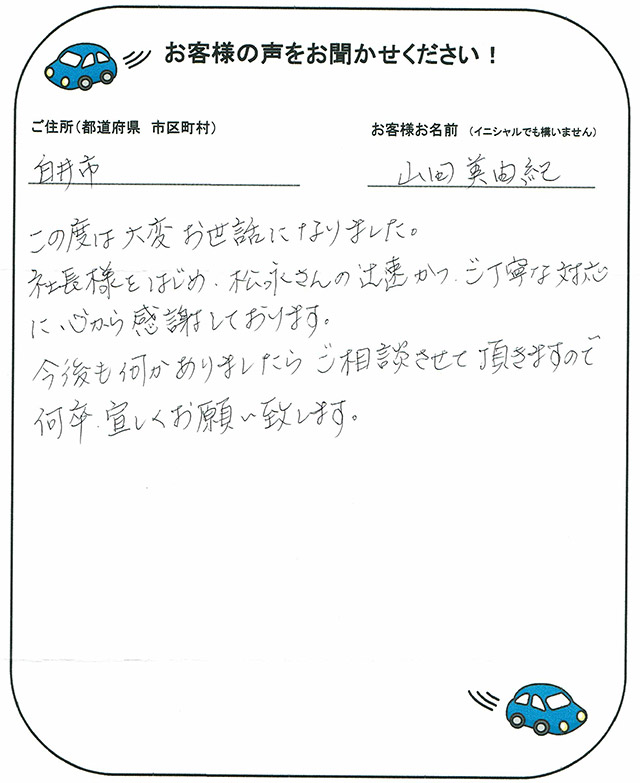 お客様の声をお聞かせください！
ご住所（都道府県　市区町村）
お客様お名前　（イニシャルでも構いません）
白井市
山田 美由紀
この度は大変お世話になりました。
社長様をはじめ、松永さんの迅速かつ、ご丁寧な対応
に心から感謝しております。
今後も何かありましたらご相談させて頂きますので
何卒、宜しくお願い致します。